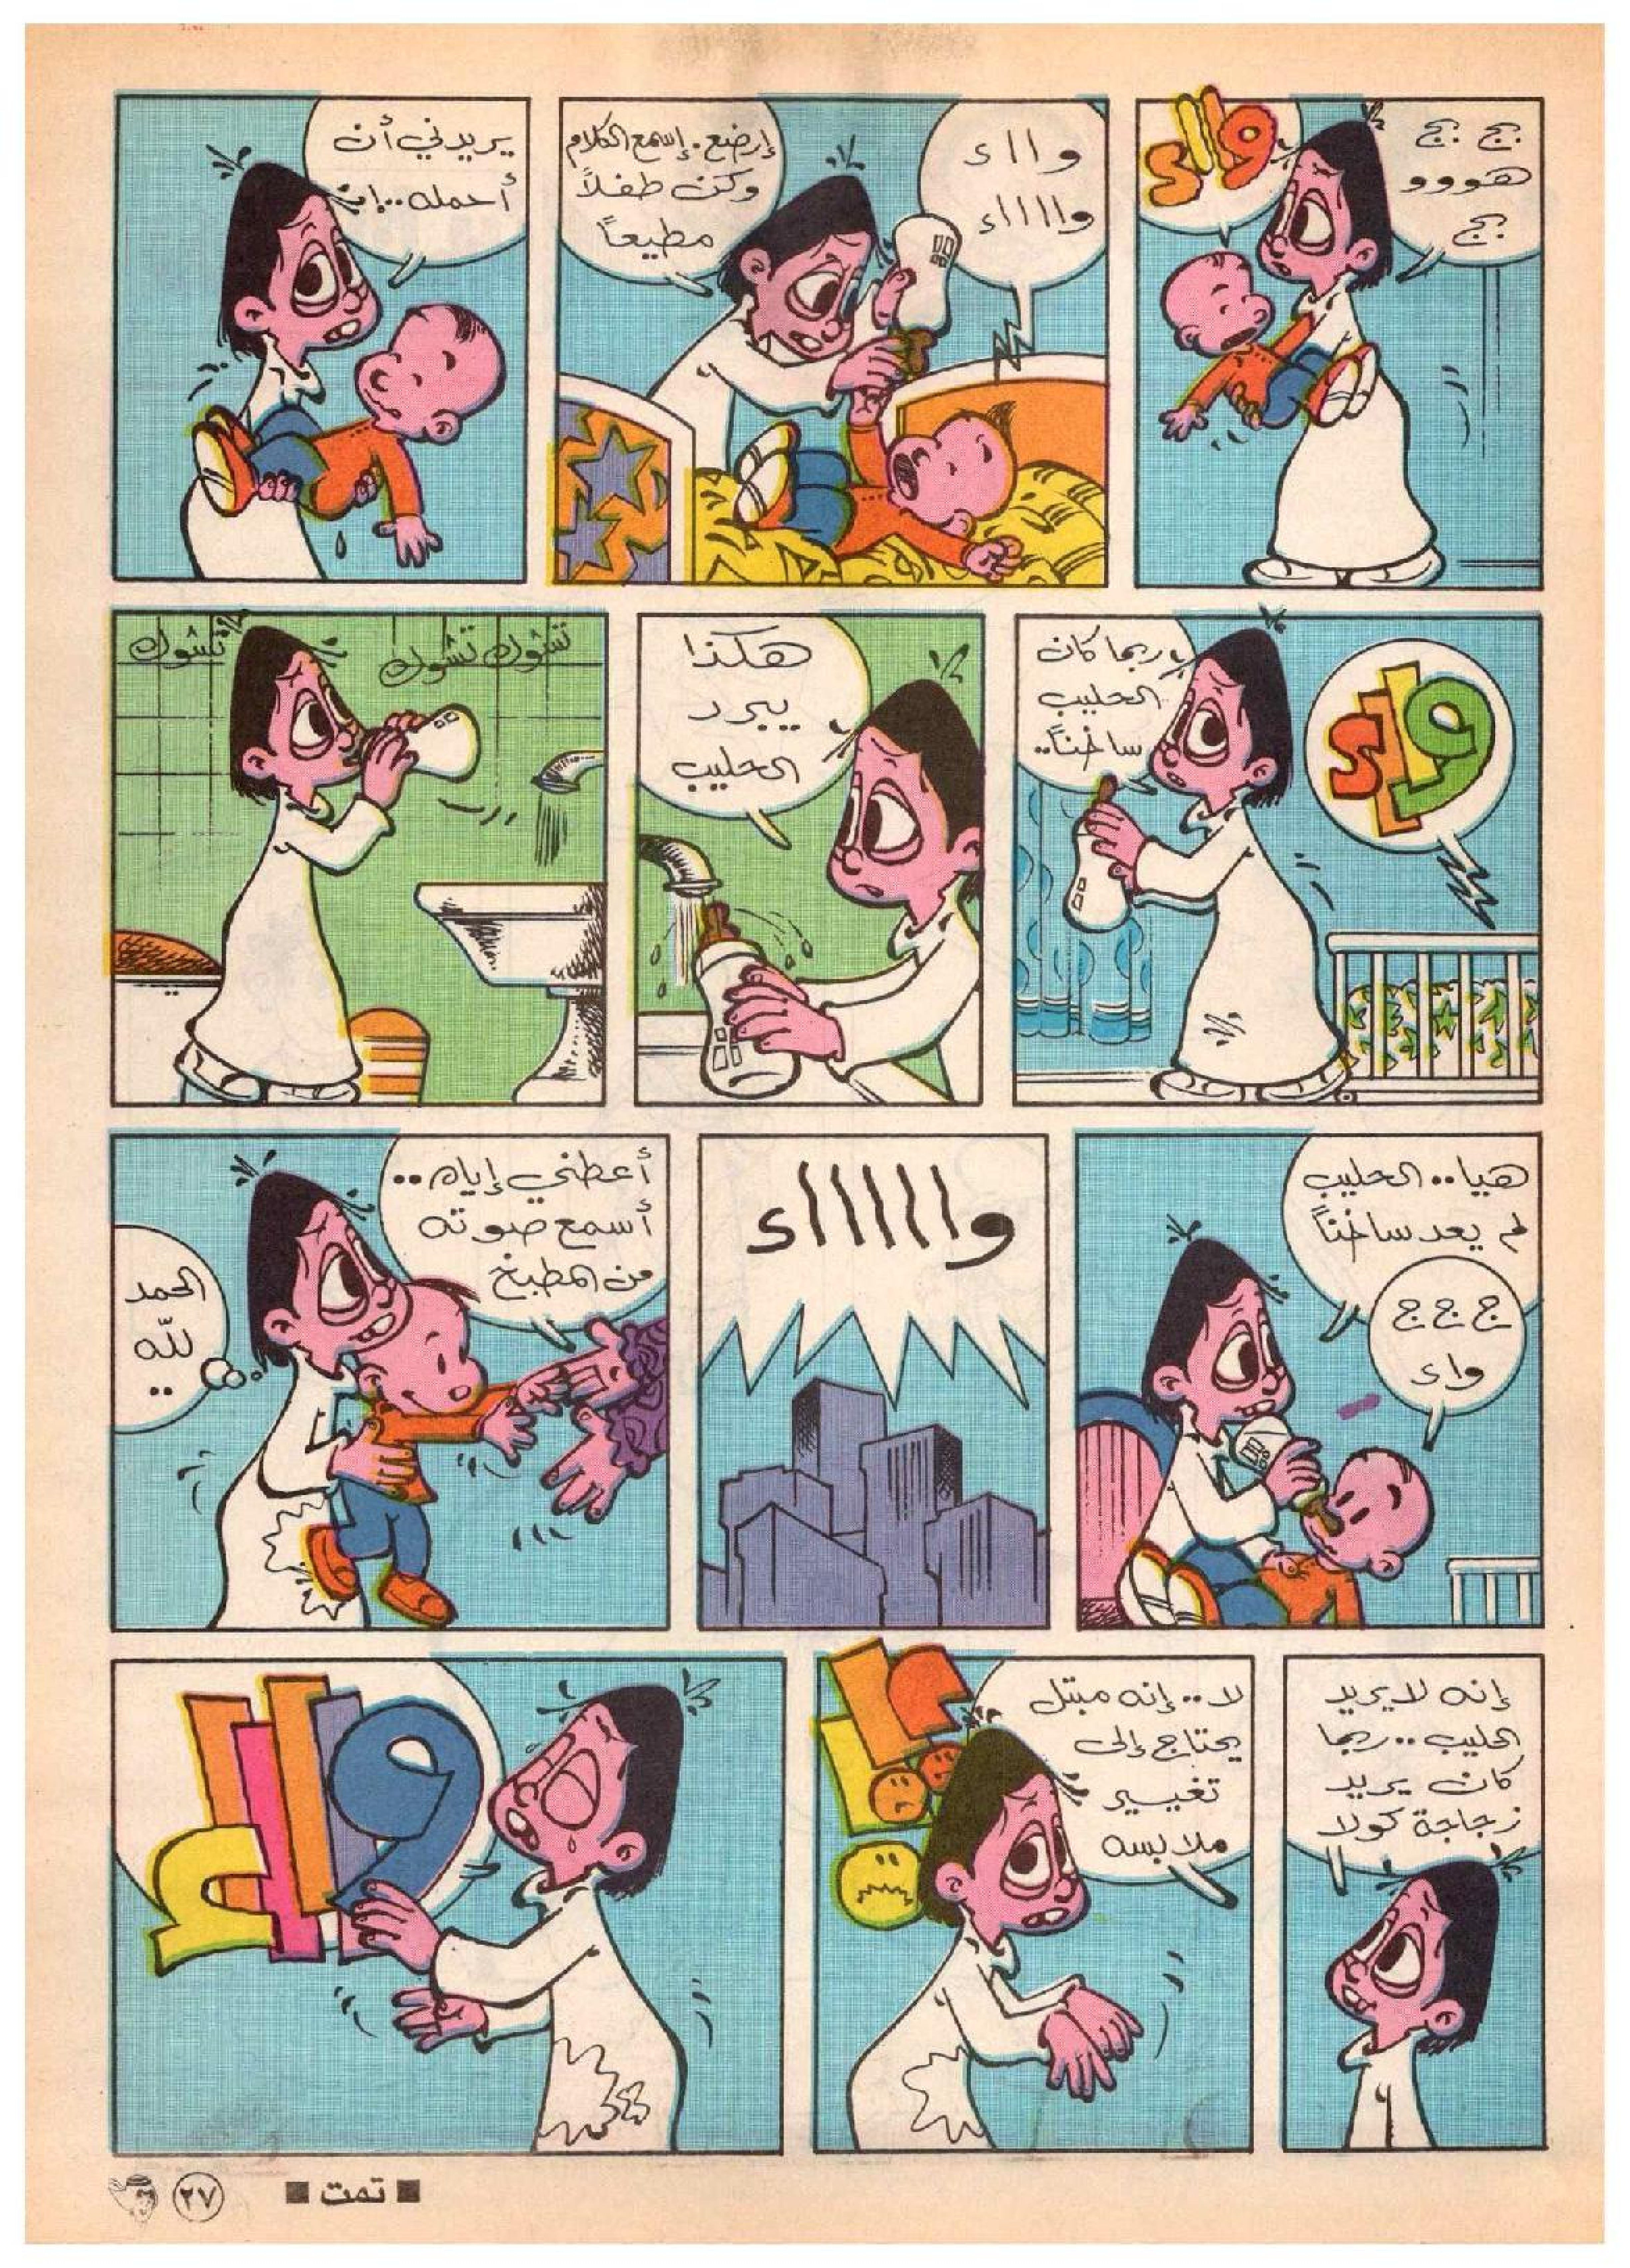 بج بج
هووو
بج
وااء
وااء
واااااء
إرضع.إسمع الكلام
وكن طفلاً
مطيعاً
يريدني أن
أحمله..إنه
واء
ربما كان
الحليب
ساخناً..
هكذا
يبرد
الحليب
تشوك تشوك
تشوك
هيا.. الحليب
لم يعد ساخناً
ج ج ج
واء
وااااااء
أعطني إياه..
أسمع صوته
من المطبخ
الحمد
لله
..
إنه لا يريد
الحليب..ربما
كان يريد
زجاجة كولا
لا.. إنه مبتل
يحتاج إلى
تغيير
ملابسه
وااااع
■ تمت ■
٢٧